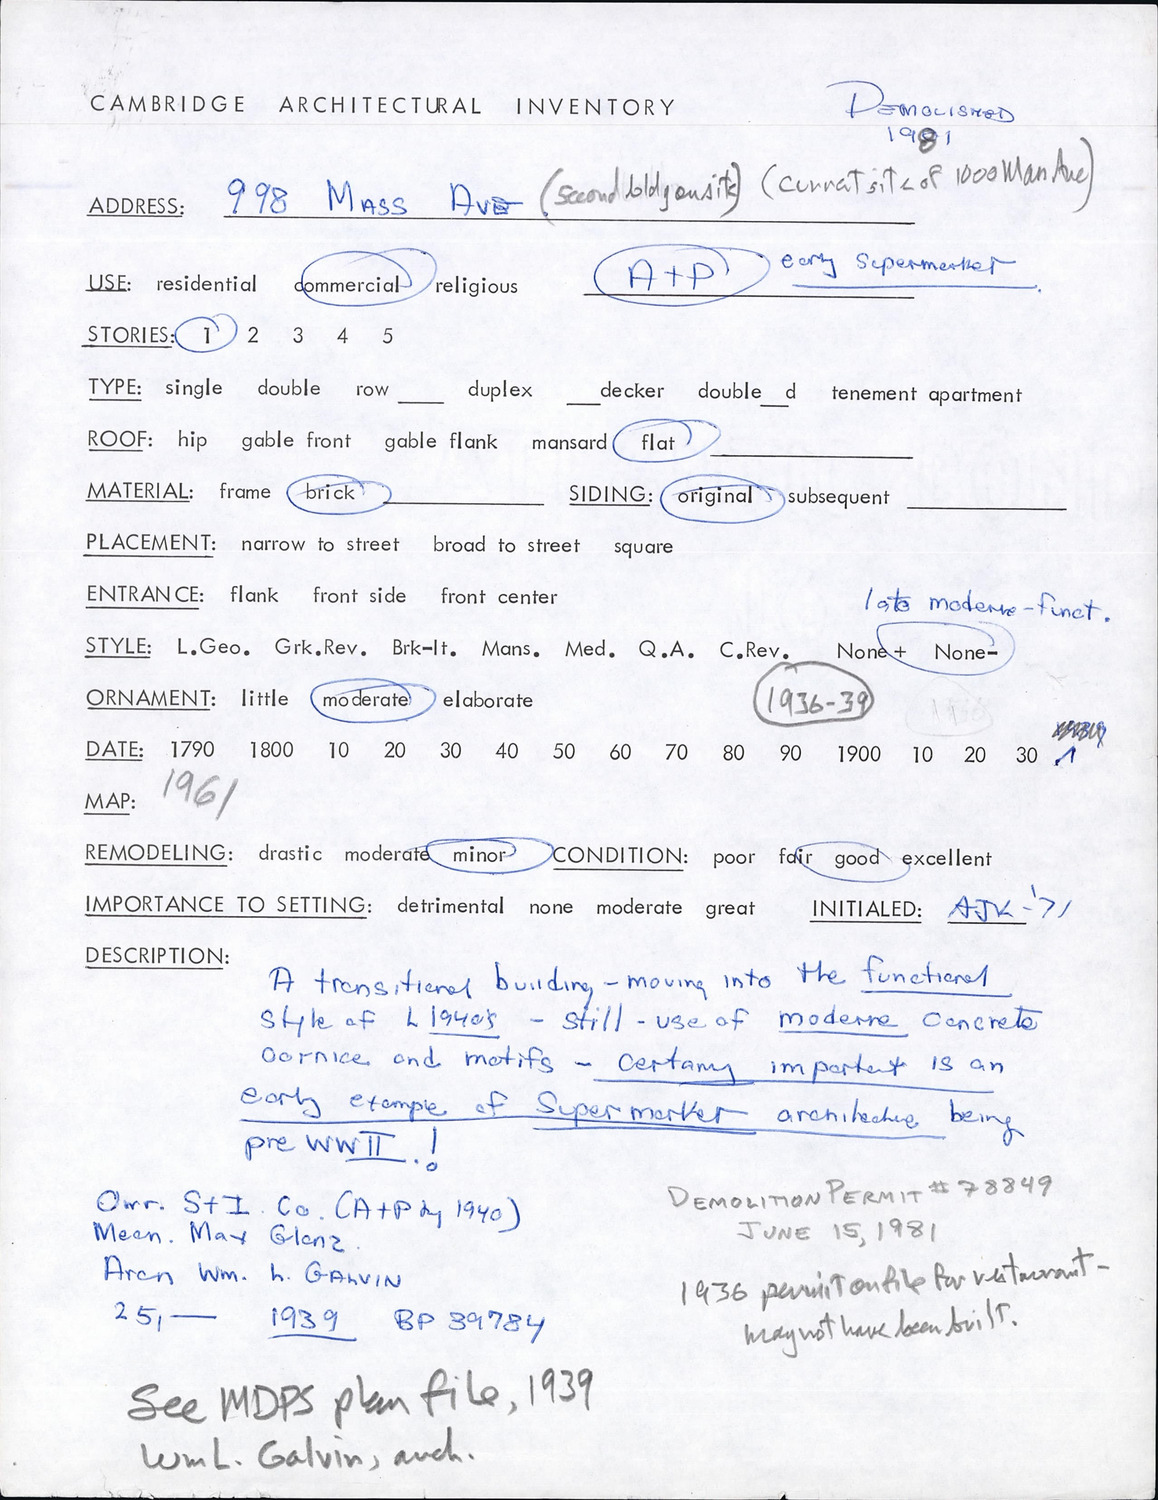 CAMBRIDGE ARCHITECTURAL INVENTORY
DEMOLISHED
1981
ADDRESS: 998 MASS AVE (second bldg on site) (current site of 1000 Mass Ave)
USE: residential commercial religious A+P early Supermarket
STORIES: 1 2 3 4 5
TYPE: single double row ____ duplex ___decker double__d tenement apartment
ROOF: hip gable front gable flank mansard flat
MATERIAL: frame brick SIDING: original subsequent
PLACEMENT: narrow to street broad to street square
ENTRANCE: flank front side front center
late moderne-funct.
STYLE: L.Geo. Grk.Rev. Brk-It. Mans. Med. Q.A. C.Rev. None+ None-
ORNAMENT: little moderate elaborate 1936-39
DATE: 1790 1800 10 20 30 40 50 60 70 80 90 1900 10 20 30
MAP: 1961
REMODELING: drastic moderate minor CONDITION: poor fair good excellent
IMPORTANCE TO SETTING: detrimental none moderate great INITIALED: AJK-'71
DESCRIPTION:
A transitional building - moving into the functional
style of L 1940's - still - use of moderne concrete
cornice and motifs - certainly important is an
early example of Supermarket architecture being
pre WWII.!
Owr. S+I. Co. (A+P by 1940)
Mecn. Max Glanz.
Arch Wm. L. GALVIN
25,— 1939 BP 39784
DEMOLITION PERMIT # 78849
JUNE 15, 1981
1936 permit on file for restaurant -
may not have been built.
See MDPS plan file, 1939
Wm L. Galvin, arch.